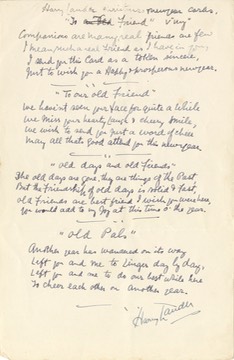 Harry Lauder newyear cards.
"To an Old Friend"
Companions are many, real friends are few
I mean, such a real friend as I have in you
I send you this Card as a token sincere,
Just to wish you a Happy & prosperous newyear.
"To our old Friend"
We haven't seen your face for quite a while
We miss your hearty laugh & cheery smile,
We wish to send you just a word of cheer
May all that's good attend you thro the newyear
"Old days and old Friends"
The old days are gone, they are things of the Past
But the Friendship of old days is solid & fast,
Old Friends are best friend I wish you were here,
You would add to my Joy at this time o' the year.
"Old Pals"
Another year has wandered on its way
Left you and me to linger day by day,
Left you and me to do our best while here
To cheer each other on Another year.
Harry Lauder